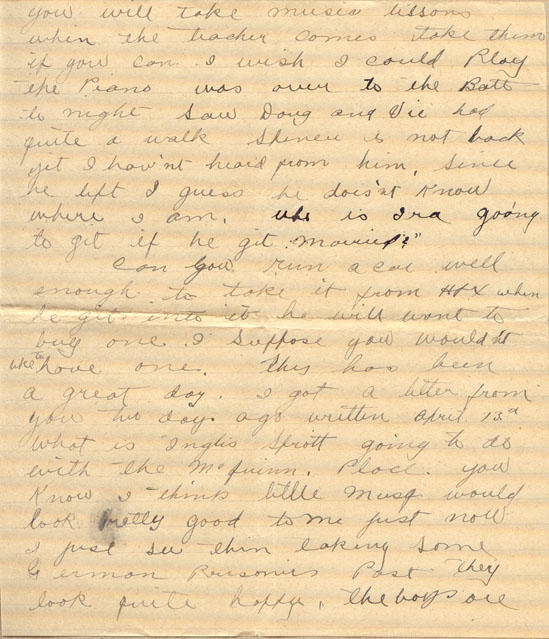 you will take music lissons
when the teacher comes take them
if you can. I wish I could Play
the Piano was over to the Batt
to night Saw Doug and Vic had
quite a walk Spencer is not back
yet I hav'nt heard from him, since
he left I guess he does'nt Know
where I am. who is Ira going
to git if he git married?"
Can you run a car well
enough to take it from Hfx when
he git into it he will want to
buy one. I suppose you would'nt
like to have one. This has been
a great day. I got a letter from
you two days ago written april 13th
What is Inglis Sprott going to do
with the McQuinn. Place. you
Know I think little Musq would
look pretty good to me just now
I just see thim taking some
German Prisoners Past They
look quite happy. The boys are